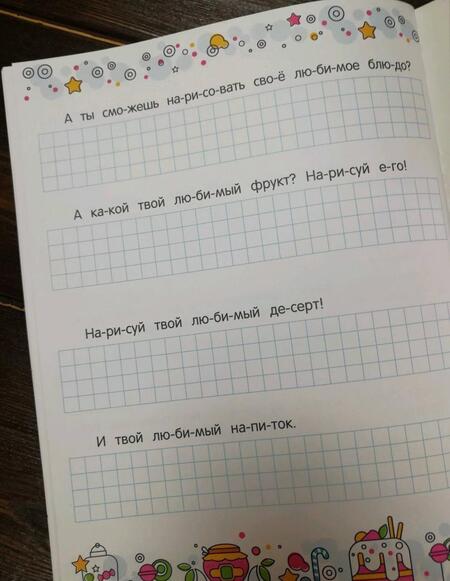 А ты смо-жешь на-ри-со-вать сво-ё лю-би-мое блю-до?
А ка-кой твой лю-би-мый фрукт? На-ри-суй е-го!
На-ри-суй твой лю-би-мый де-серт!
И твой лю-би-мый на-пи-ток.